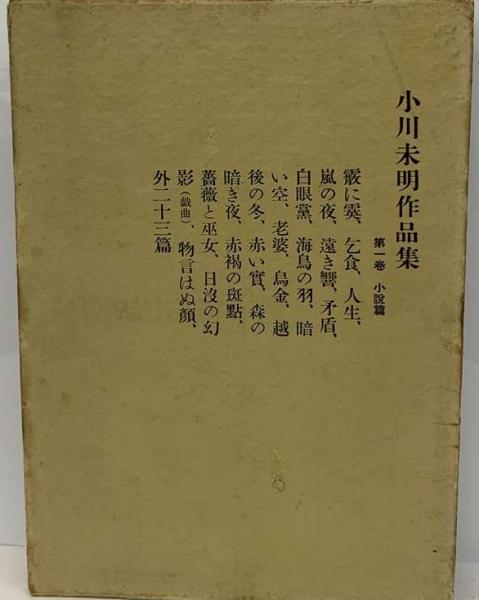 小川未明作品集
第一卷 小說篇
霰に霙、乞食、人生、
嵐の夜、遠き響、矛盾、
白眼黨、海鳥の羽、暗
い空、老婆、烏金、越
後の冬、赤い實、森の
暗き夜、赤褐の斑點、
薔薇と巫女、日沒の幻
影（戯曲）、物言はぬ顏、
外二十三篇